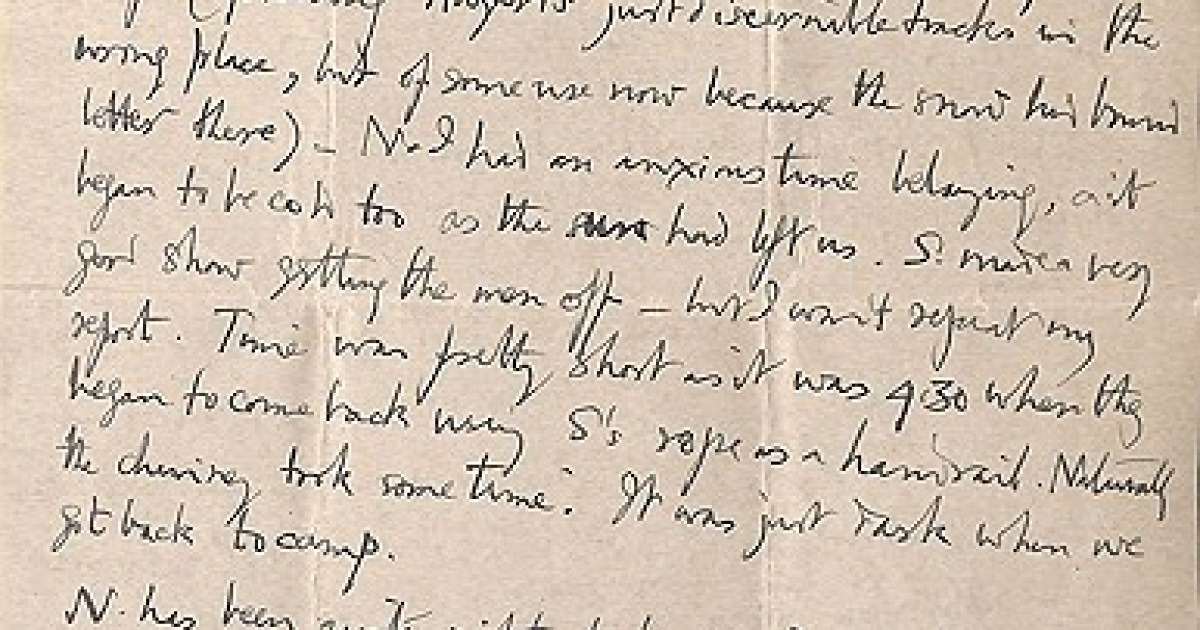 just discernible tracks in the
wrong place, but of some use now because the snow had bound
better there) – N. & I had an anxious time belaying, & it
began to be cold too as the sun had left us. S. made a very
good show getting the men off – but I won't repeat my
report. Time was pretty short as it was 4.30 when they
began to come back using S's rope as a handrail. Naturally
the chimney took some time. It was just dark when we
got back to camp.
N. has been quite